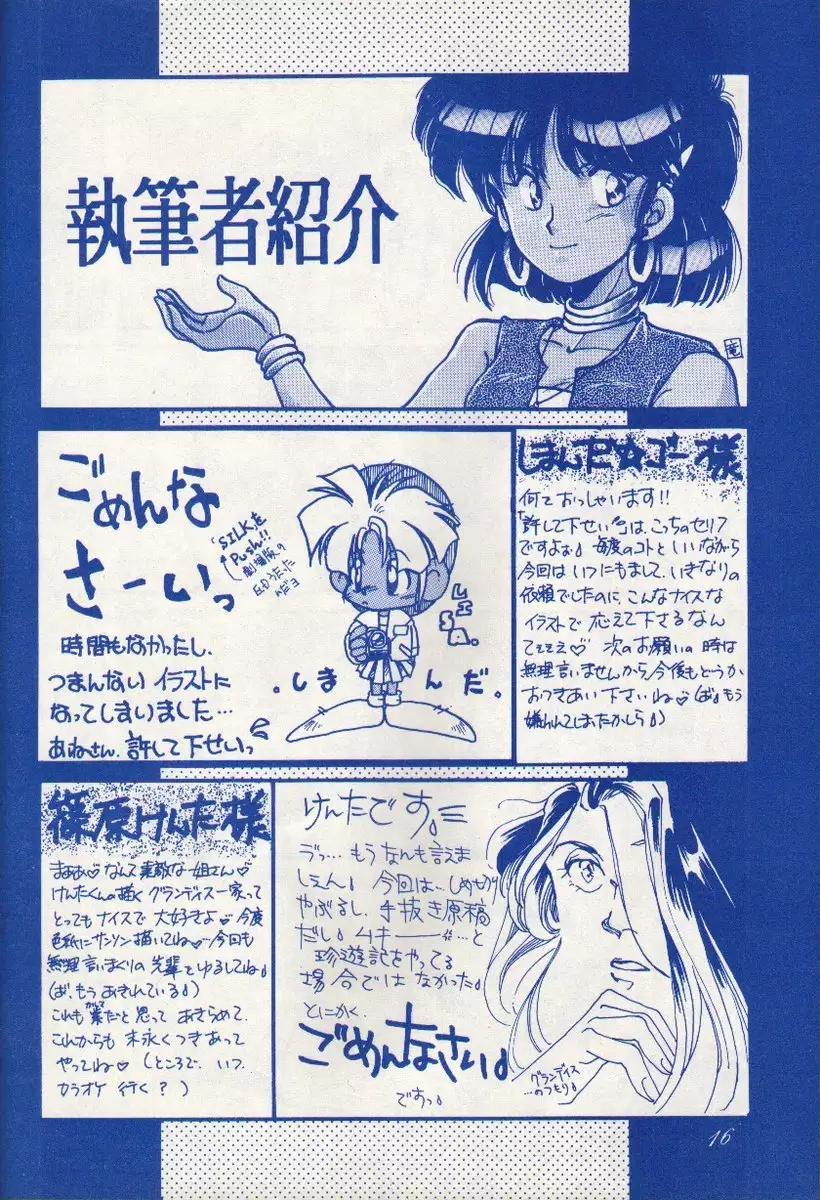 執筆者紹介
竜
ごめんな
さーいっ
SILKを
Push!!
劇場版の
EDうたった
んだヨ
時間もなかったし、
つまんない イラストに
なってしまいました…
あねさん、許して下せいっ
.しまんだ.
しまんだ☆ゴー様
何ておっしゃいます!!
「許して下せい」は、こっちのセリフ
ですよぉ 毎度のコトといいながら
今回は いつにもまして、いきなりの
依頼でしたのに こんなナイスな
イラストで 応えて下さるなん
てぇぇぇ♡ 次のお願いの時は
無理言いませんから、今後もどうか
おつきあい下さいね♡(ば、もう
嫌われてしまったかしら)
篠原けんた様
まぁぁ♡なんて素敵な姐さん♡
けんたくんの描く グランディス一家って
とってもナイスで 大好きよ♡今度
色紙にサンソン描いてね♡今回も
無理言いまくりの先輩とゆるしてね
(ば、もう あきれている)
これも業だと思って あきらめて、
これからも 末永くつきあって
やってね♡(ところで、いつ、
カラオケ 行く?)
けんたです。
ゔっ… もう なんも言えま
しぇん 今回は、しめきり
やぶるし、手抜き原稿
だし ムキーー…と
珍遊記をやってる
場合ではなかった
とにかく、
ごめんなさい
ですっ
グランディス
…のつもり
16